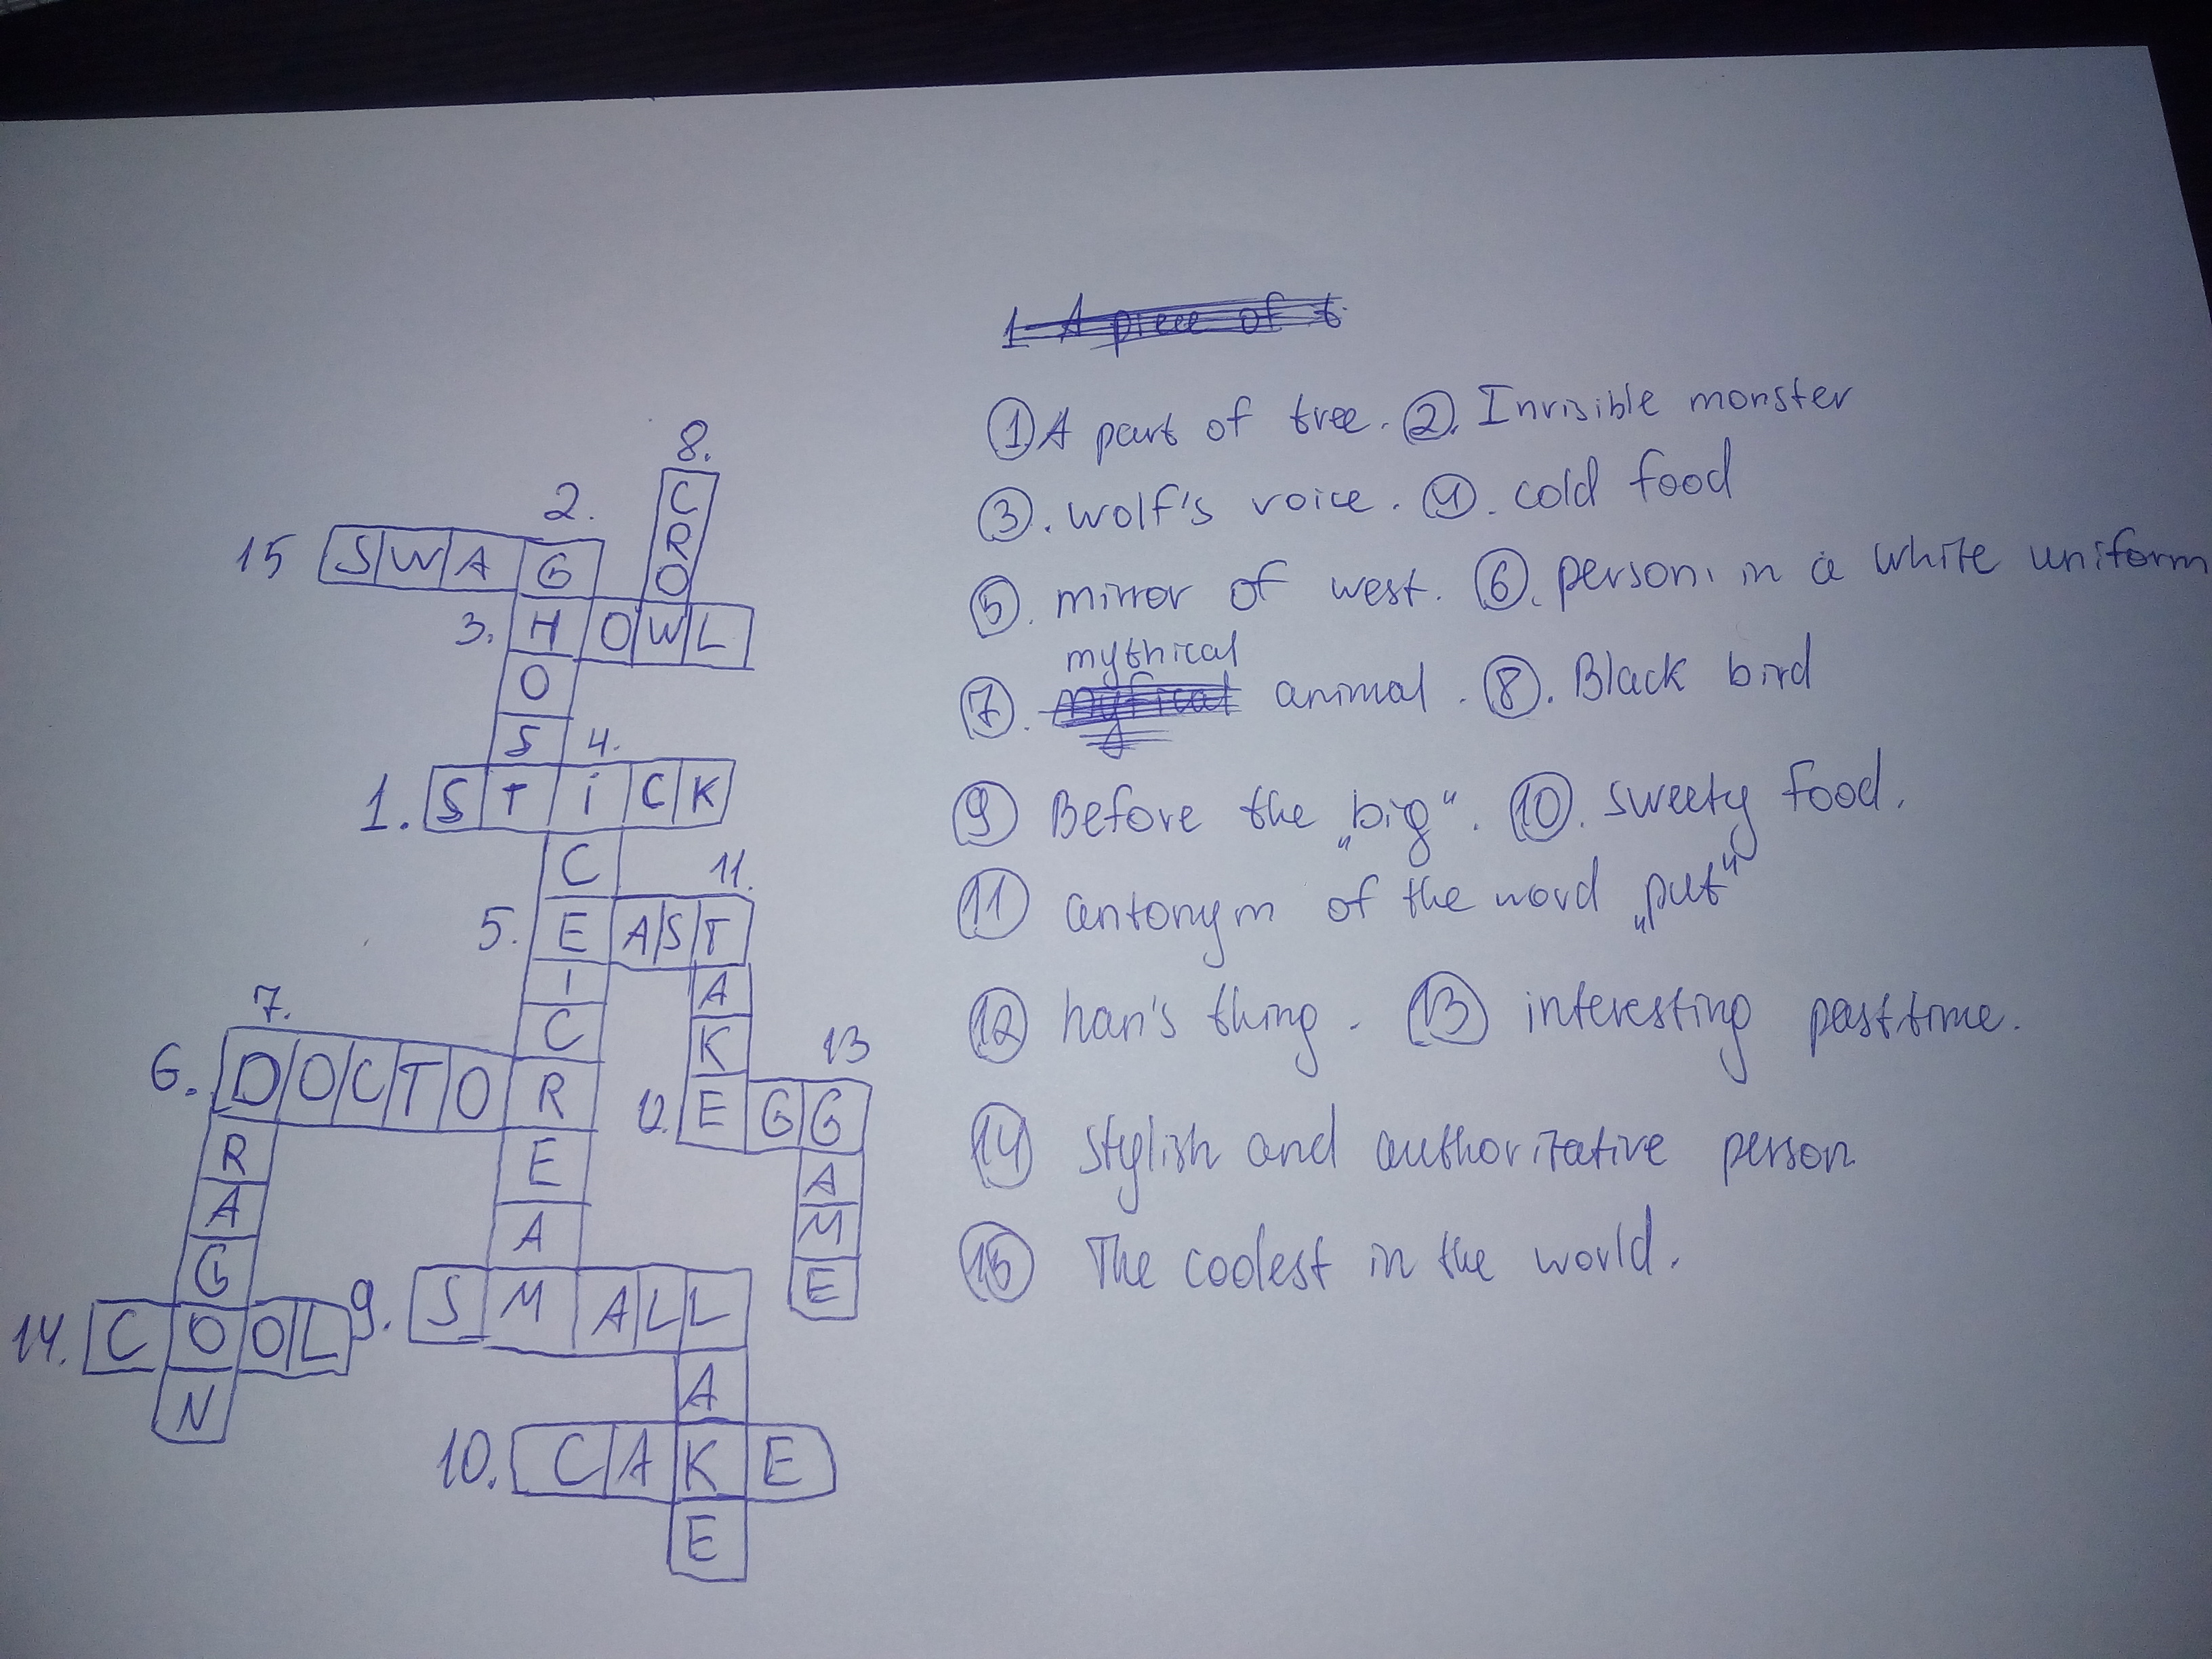 8.
C
2.
R
15 SWAG
O
3. HOWL
O
S
4.
1. STiCK
C
11.
5. EAST
I
A
C
K
7.
13
6. DOCTOR
12. EGG
R
E
A
A
A
M
G
E
14. COOL
9. SMALL
N
A
10. CAKE
E
1 A piece of t.
① A part of tree. ②. Invisible monster
③. wolf's voice. ④. cold food
⑤. mirror of west. ⑥. person in a white uniform
mythical
⑦. myfical animal. ⑧. Black bird
⑨ Before the „big“. ⑩. sweety food.
⑪ antonym of the word „put“
⑫ han's thing. ⑬ interesting pasttime.
⑭ stylish and authoritative person
⑮ The coolest in the world.